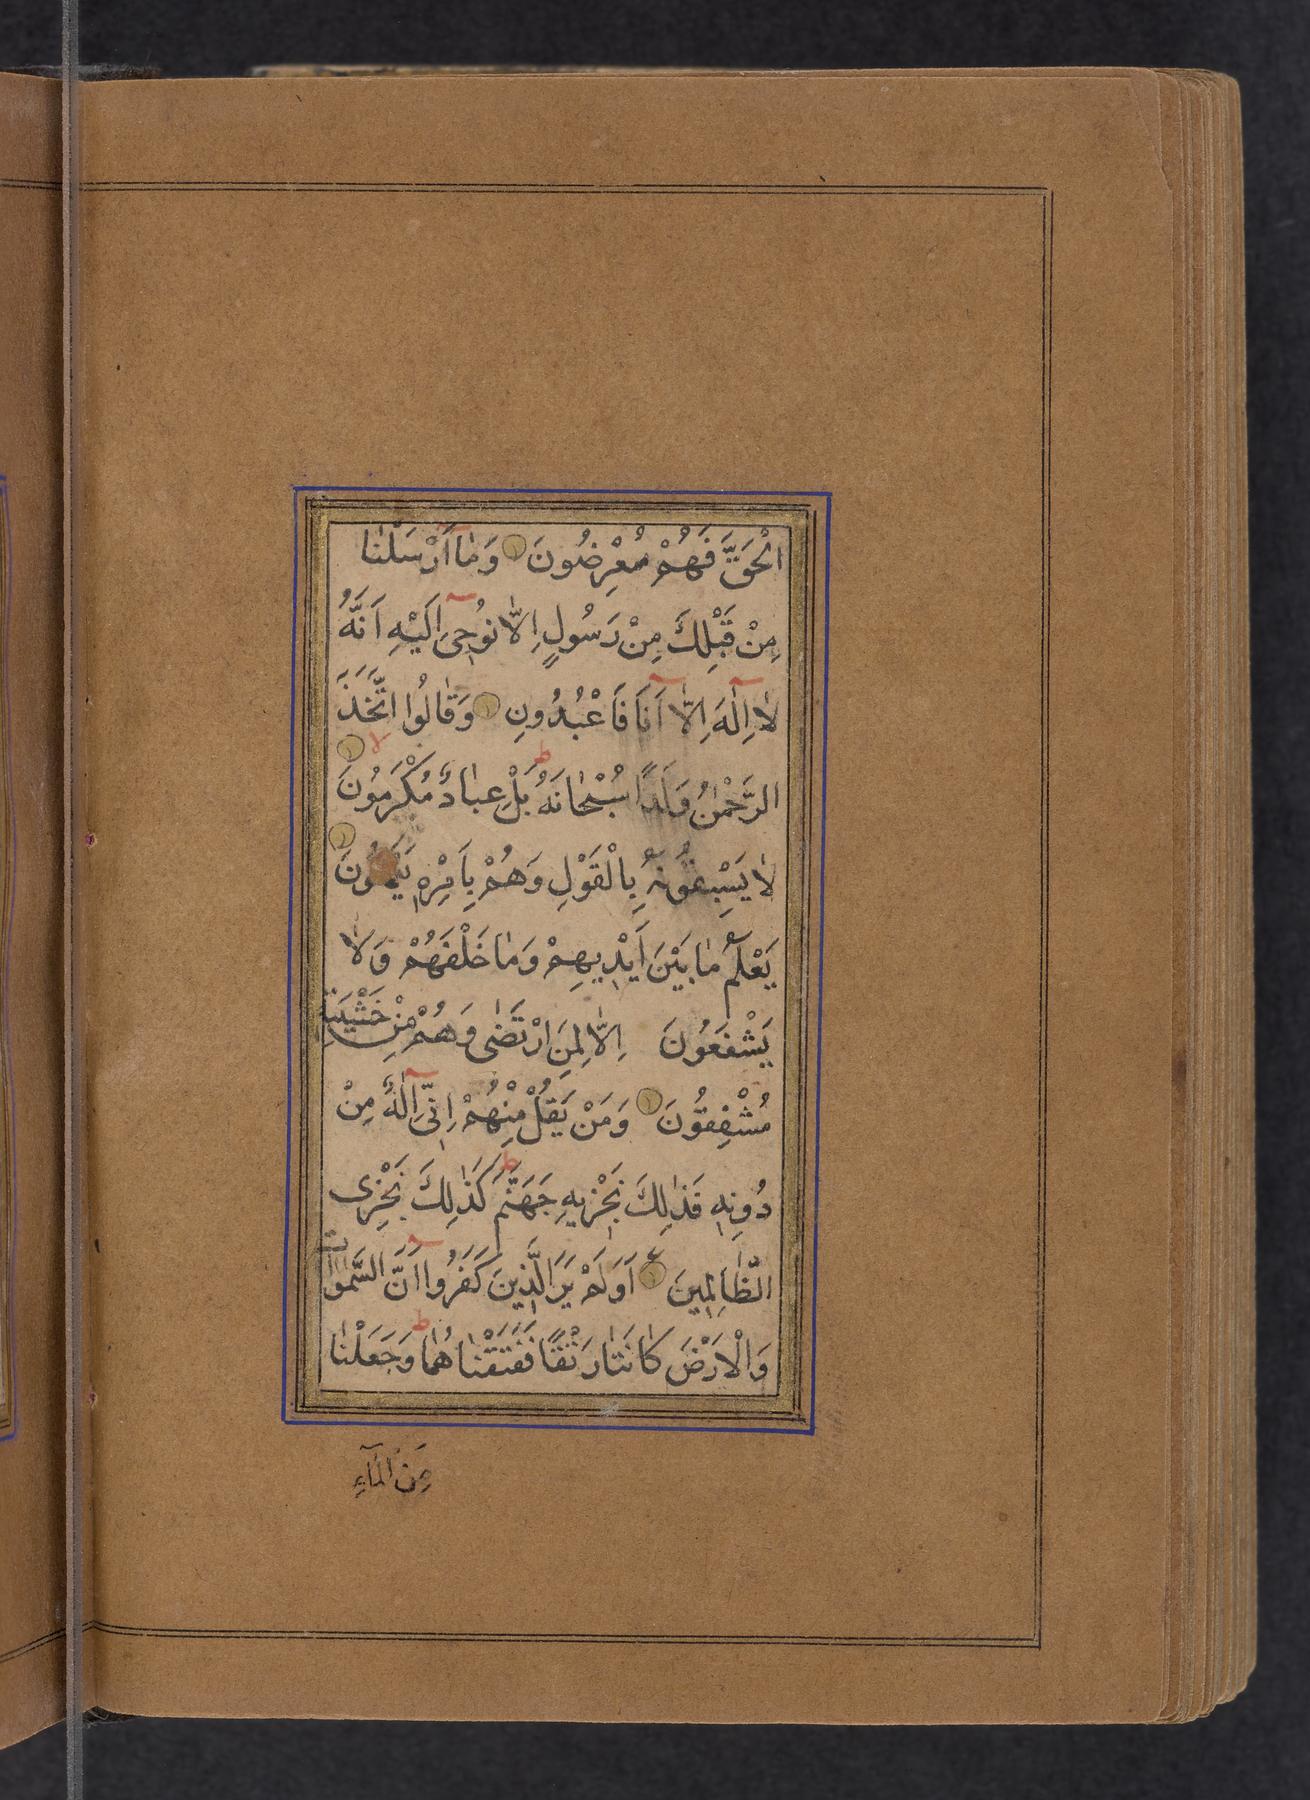 الْحَقَّ فَهُمْ مُعْرِضُونَ وَمٰٓا اَرْسَلْنٰا
مِنْ قَبْلِكَ مِنْ رَسُولٍ اِلّٰا نُوحٖٓى اِلَيْهِ اَنَّهُ
لٰٓا اِلٰهَ اِلّٰٓا اَنَا فَاعْبُدُونِ وَقٰالُوا اتَّخَذَ
الرَّحْمٰنُ وَلَدًا سُبْحٰانَهُ ط بَلْ عِبٰادٌ مُكْرَمُونَ لا
لٰا يَسْبِقُونَهُ بِالْقَوْلِ وَهُمْ بِاَمْرِهٖ
يَعْلَمُ مٰا بَيْنَ اَيْدٖيهِمْ وَمٰا خَلْفَهُمْ وَلٰا
يَشْفَعُونَ اِلّٰا لِمَنِ ارْتَضٰى وَهُمْ مِنْ خَشْيَتِهٖ
مُشْفِقُونَ وَمَنْ يَقُلْ مِنْهُمْ اِنّٖٓى اِلٰهٌ مِنْ
دُونِهٖ فَذٰلِكَ نَجْزٖيهِ جَهَنَّمَ ط كَذٰلِكَ نَجْزِى
الظّٰالِمٖينَ ع اَوَلَمْ يَرَ الَّذٖينَ كَفَرُوٓا اَنَّ السَّمٰوٰاتِ
وَالْاَرْضَ كٰانَتٰا رَتْقًا فَفَتَقْنٰاهُمٰا ط وَجَعَلْنٰا
مِنَ الْمَآءِ